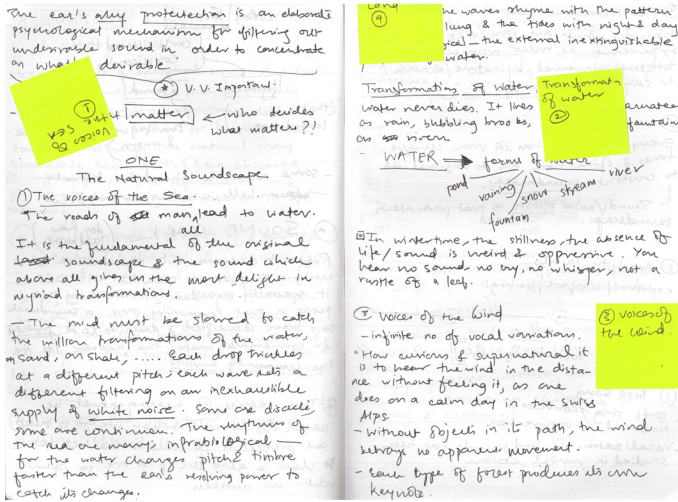 The ear's only protection is an elaborate
psychological mechanism for filtering out
undesirable sound in order to concentrate
on what's desirable
V. V. Important.
① Voices
of the
SEA
matter ← who decides
what matters?!
ONE
The Natural Soundscape
① The voices of the Sea.
The roads of man all lead to water.
It is the fundamental of the original
soundscape & the sound which
above all gives us the most delight in
myriad transformations.
— The mind must be slowed to catch
the million transformations of the water,
on sand, on shale, ..... Each drop trickles
at a different pitch; each wave sets a
different filtering on an inexhaustible
supply of white noise. Some are discrete,
some are continuous. The rhythms of
the sea are many: infrabiological —
for the water changes pitch & timbre
faster than the ear's resolving power to
catch its change.
the waves rhyme with the pattern
lung & the tides with night & day
— the external inextinguishable
water.
Transformations of Water
Transformation
of water
②
water never dies. It lives
as rain, bubbling brooks, fountain
as rivers
- WATER → forms of water
pond
raining
fountain
snow
stream
river
In wintertime, the stillness, the absence of
life/sound is weird & oppressive. You
hear no sound no cry, no whisper, not a
rustle of a leaf.
③ Voices of the Wind
③ voices of
the wind.
- infinite no of vocal variations.
"How curious & supernatural it
is to hear the wind in the dista-
nce without feeling it, as one
does on a calm day in the Swiss
Alps.
- Without objects in its path, the wind
betrays no apparent movement.
- Each type of forest produces its own
keynote.